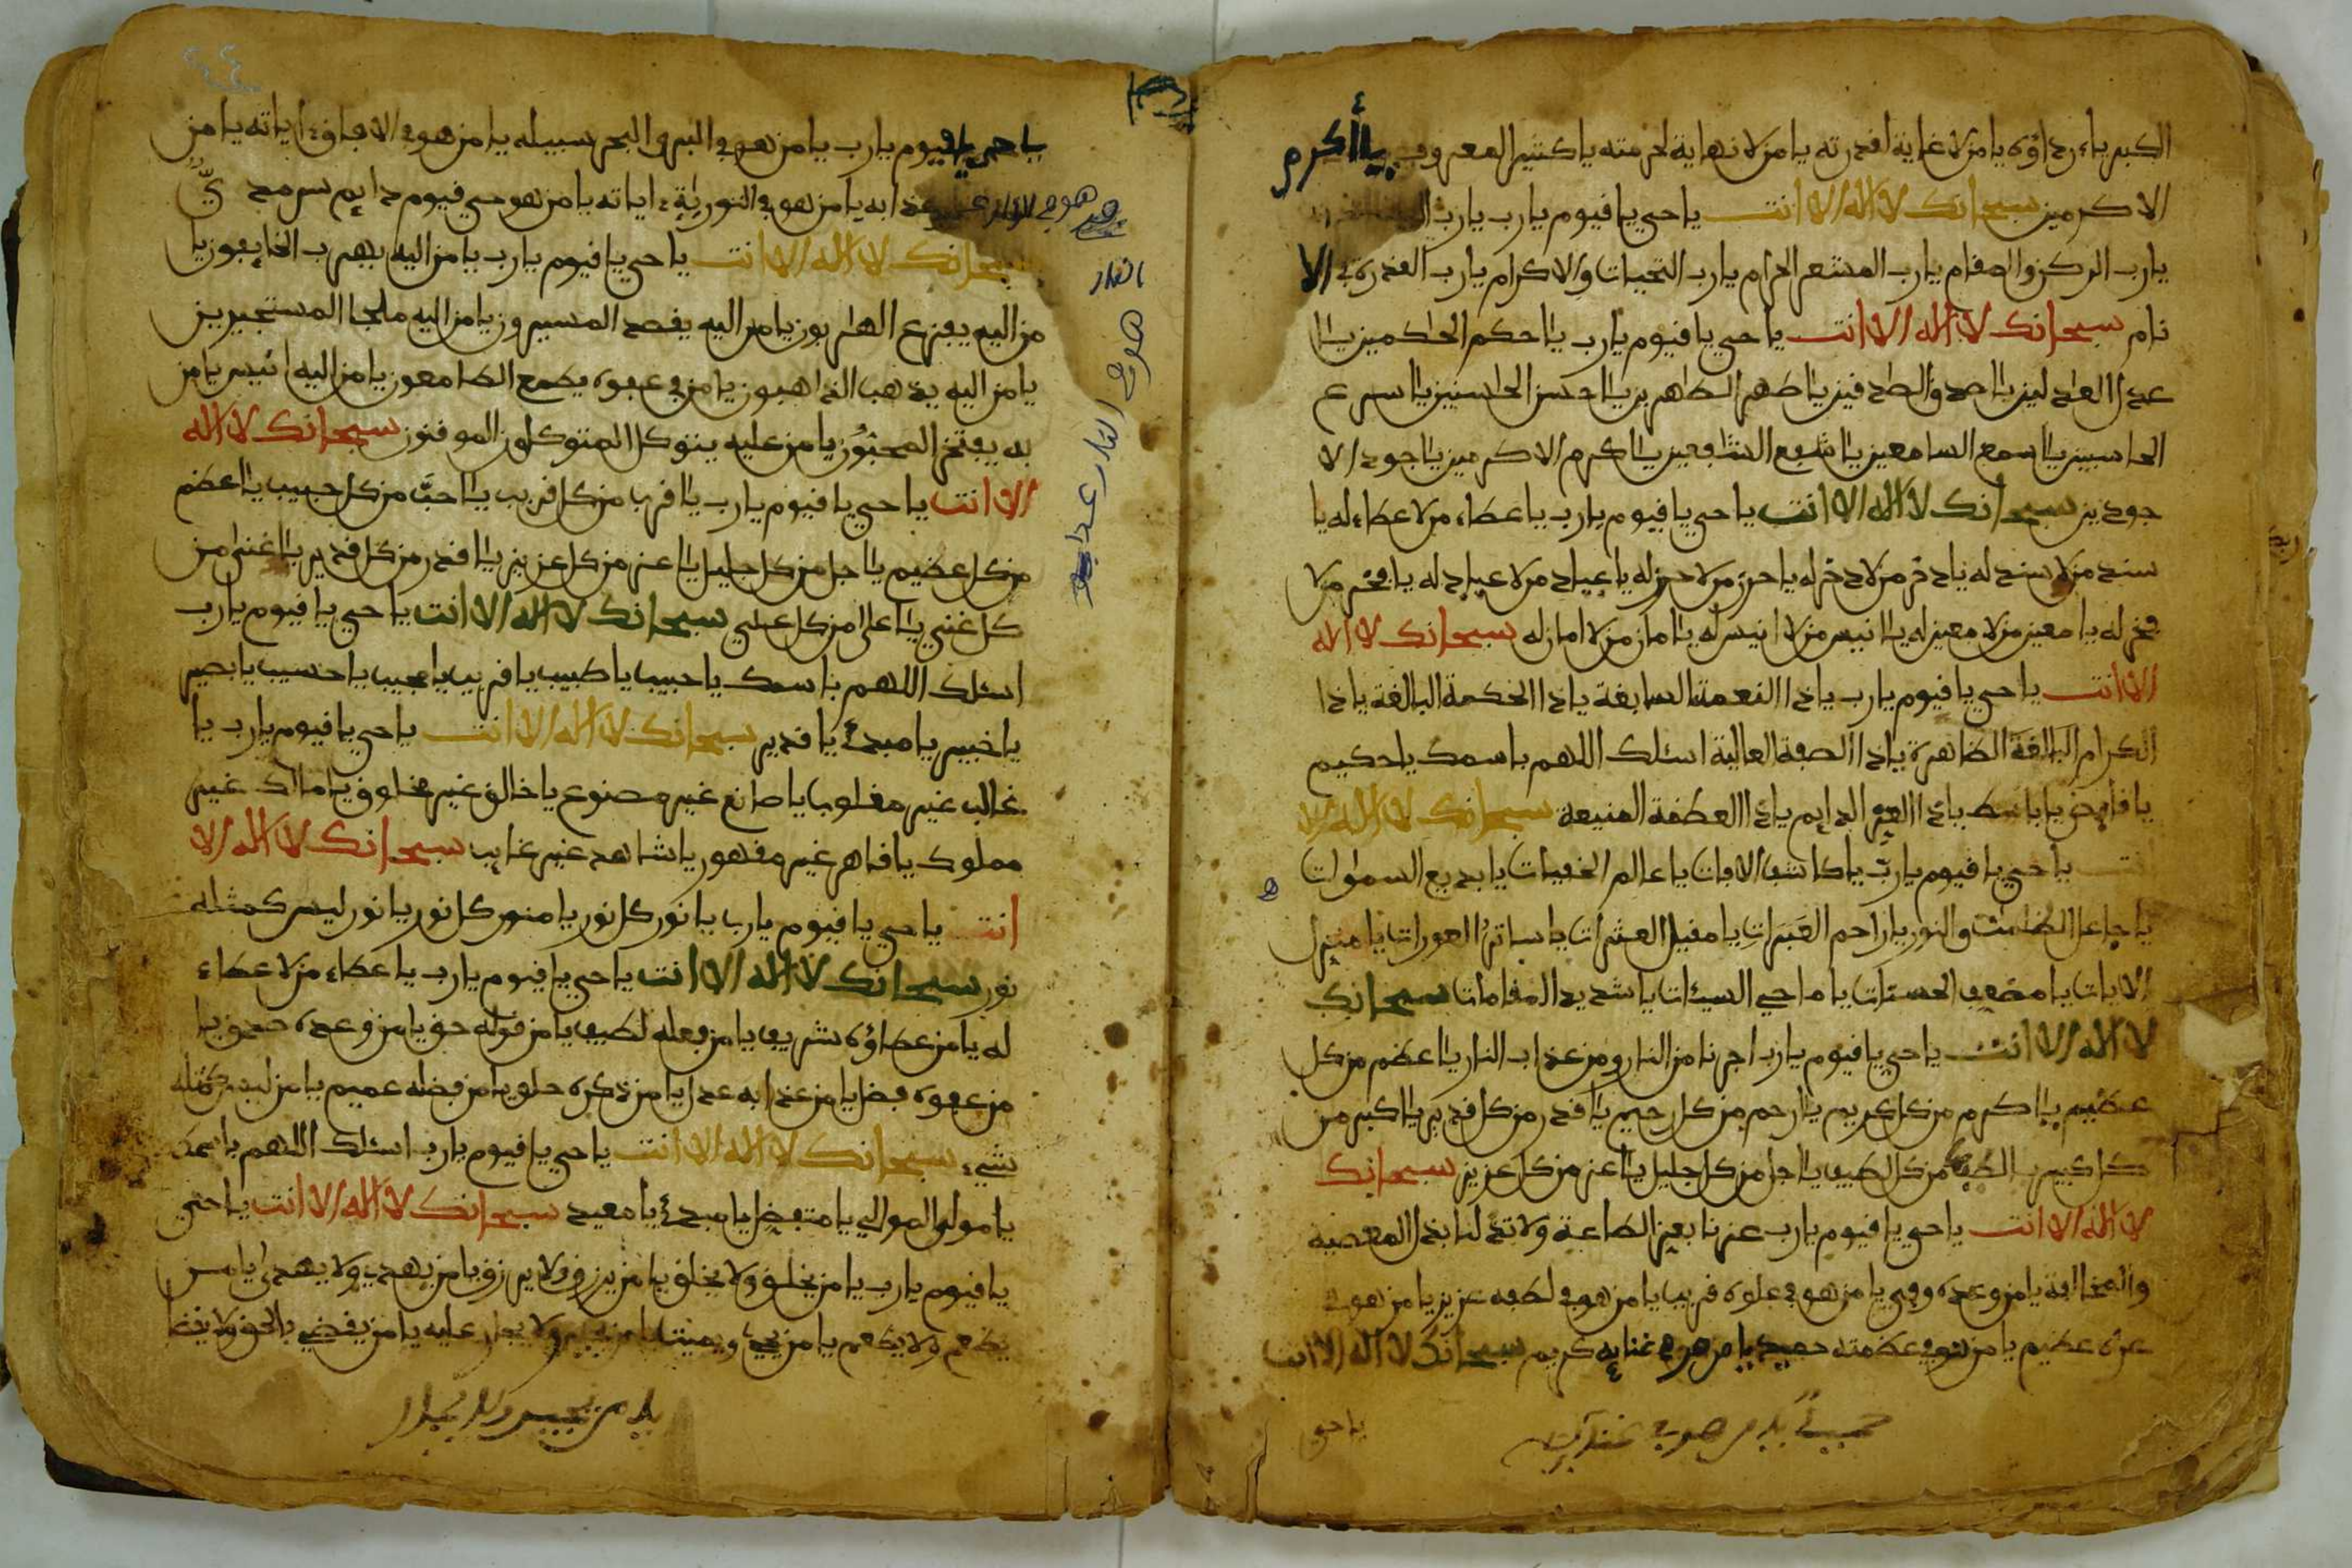 الكبرياء رداؤه يا من لا غاية لقدرته يا من لا نهاية لحرمته يا كثير المعروف يا أكرم
الاكرمين سبحانك لا اله الا انت يا حي يا قيوم يا رب يا رب
يا رب الركن والمقام يا رب المشعر الحرام يا رب التحيات والاكرام يا رب القدرة الا
نام سبحانك لا اله الا انت يا حي يا قيوم يا رب يا احكم الحاكمين يا ا
عدل العادلين يا اصدق الصادقين يا اطهر الطاهرين يا احسن الحاسنين يا اسرع
الحاسبين يا اسمع السامعين يا اشفع الشافعين يا اكرم الاكرمين يا اجود الا
جودين سبحانك لا اله الا انت يا حي يا قيوم يا رب يا عطاء من لا عطاء له يا
سند من لا سند له يا ذخر من لا ذخر له يا حرز من لا حرز له يا غياث من لا غياث له يا فخر من لا
فخر له يا معين من لا معين له يا انيس من لا انيس له يا امان من لا امان له سبحانك لا اله
الا انت يا حي يا قيوم يا رب يا ذا النعمة السابغة يا ذا الحكمة البالغة يا ذا
الكرام البالغة الظاهرة يا ذا الصفة العالية اسئلك اللهم باسمك يا حكيم
يا قابض يا باسط يا ذا العز الدايم يا ذا العظمة المنيعة سبحانك لا اله الا
انت يا حي يا قيوم يا رب يا كاشف الافات يا عالم الخفيات يا بديع السموات
يا جاعل الظلمات والنور يا راحم العبرات يا مقيل العثرات يا ساتر العورات يا منزل
الايات يا مضعف الحسنات يا ماحي السيئات يا شديد المقامات سبحانك
لا اله الا انت يا حي يا قيوم يا رب اجرنا من النار ومن عذاب النار يا اعظم من كل
عظيم يا اكرم من كل كريم يا ارحم من كل رحيم يا اقدر من كل قدير يا اكبر من
كل كبير يا الطف من كل لطيف يا اجل من كل جليل يا اعز من كل عزيز سبحانك
لا اله الا انت يا حي يا قيوم يا رب عزنا بعز الطاعة ولا تذلنا بذل المعصية
والمخالفة يا من وعده وفي يا من هو في علوه قريب يا من هو في لطفه عزيز يا من هو في
عزه عظيم يا من هو في عظمته حميد يا من هو في غنايه كريم سبحانك لا اله الا انت
يا حي
يا حي يا قيوم يا رب يا من هو في البر والبحر سبيله يا من هو في الافاق اياته يا من
هو في النار عذابه يا من هو في التورية اياته يا من هو حي قيوم دايم سرمد يّ
سبحانك لا اله الا انت يا حي يا قيوم يا رب يا من اليه يهرب الخايفون يا
من اليه يفزع الهاربون يا من اليه يقصد المسيرون يا من اليه ملجا المستجيرين
يا من اليه يذهب الذاهبون يا من في عفوه يطمع الطامعون يا من اليه انيس يا من
به يفتخر المحبون يا من عليه يتوكل المتوكلون الموقنون سبحانك لا اله
الا انت يا حي يا قيوم يا رب يا اقرب من كل قريب يا احب من كل حبيب يا اعظم
من كل عظيم يا اجل من كل جليل يا اعز من كل عزيز يا اقدر من كل قدير يا اغنى من
كل غني يا اعلى من كل علي سبحانك لا اله الا انت يا حي يا قيوم يا رب
اسئلك اللهم باسمك يا حبيب يا طبيب يا قريب يا مجيب يا حسيب يا بصير
يا خبير يا مبدئ يا قدير سبحانك لا اله الا انت يا حي يا قيوم يا رب يا
غالب غير مغلوب يا صانع غير مصنوع يا خالق غير مخلوق يا مالك غير
مملوك يا قاهر غير مقهور يا شاهد غير غايب سبحانك لا اله الا
انت يا حي يا قيوم يا رب يا نور كل نور يا منور كل نور يا نور ليس كمثله
نور سبحانك لا اله الا انت يا حي يا قيوم يا رب يا عطاء من لا عطاء
له يا من عطاؤه شريف يا من فعله لطيف يا من قوله حق يا من وعده صدق يا
من عفوه فضل يا من عذابه عدل يا من ذكره حلو يا من فضله عميم يا من ليس كمثله
شيء سبحانك لا اله الا انت يا حي يا قيوم يا رب اسئلك اللهم باسمك
يا مولى الموالي يا متفضل يا مبدئ يا معيد سبحانك لا اله الا انت يا حي
يا قيوم يا رب يا من يخلق ولا يخلق يا من يرزق ولا يرزق يا من يهدي ولا يهدى يا من
يطعم ولا يطعم يا من يحيي ويميت يا من يجير ولا يجار عليه يا من يقضي بالحق ولا يقضا
يا من يجير ولا يجار